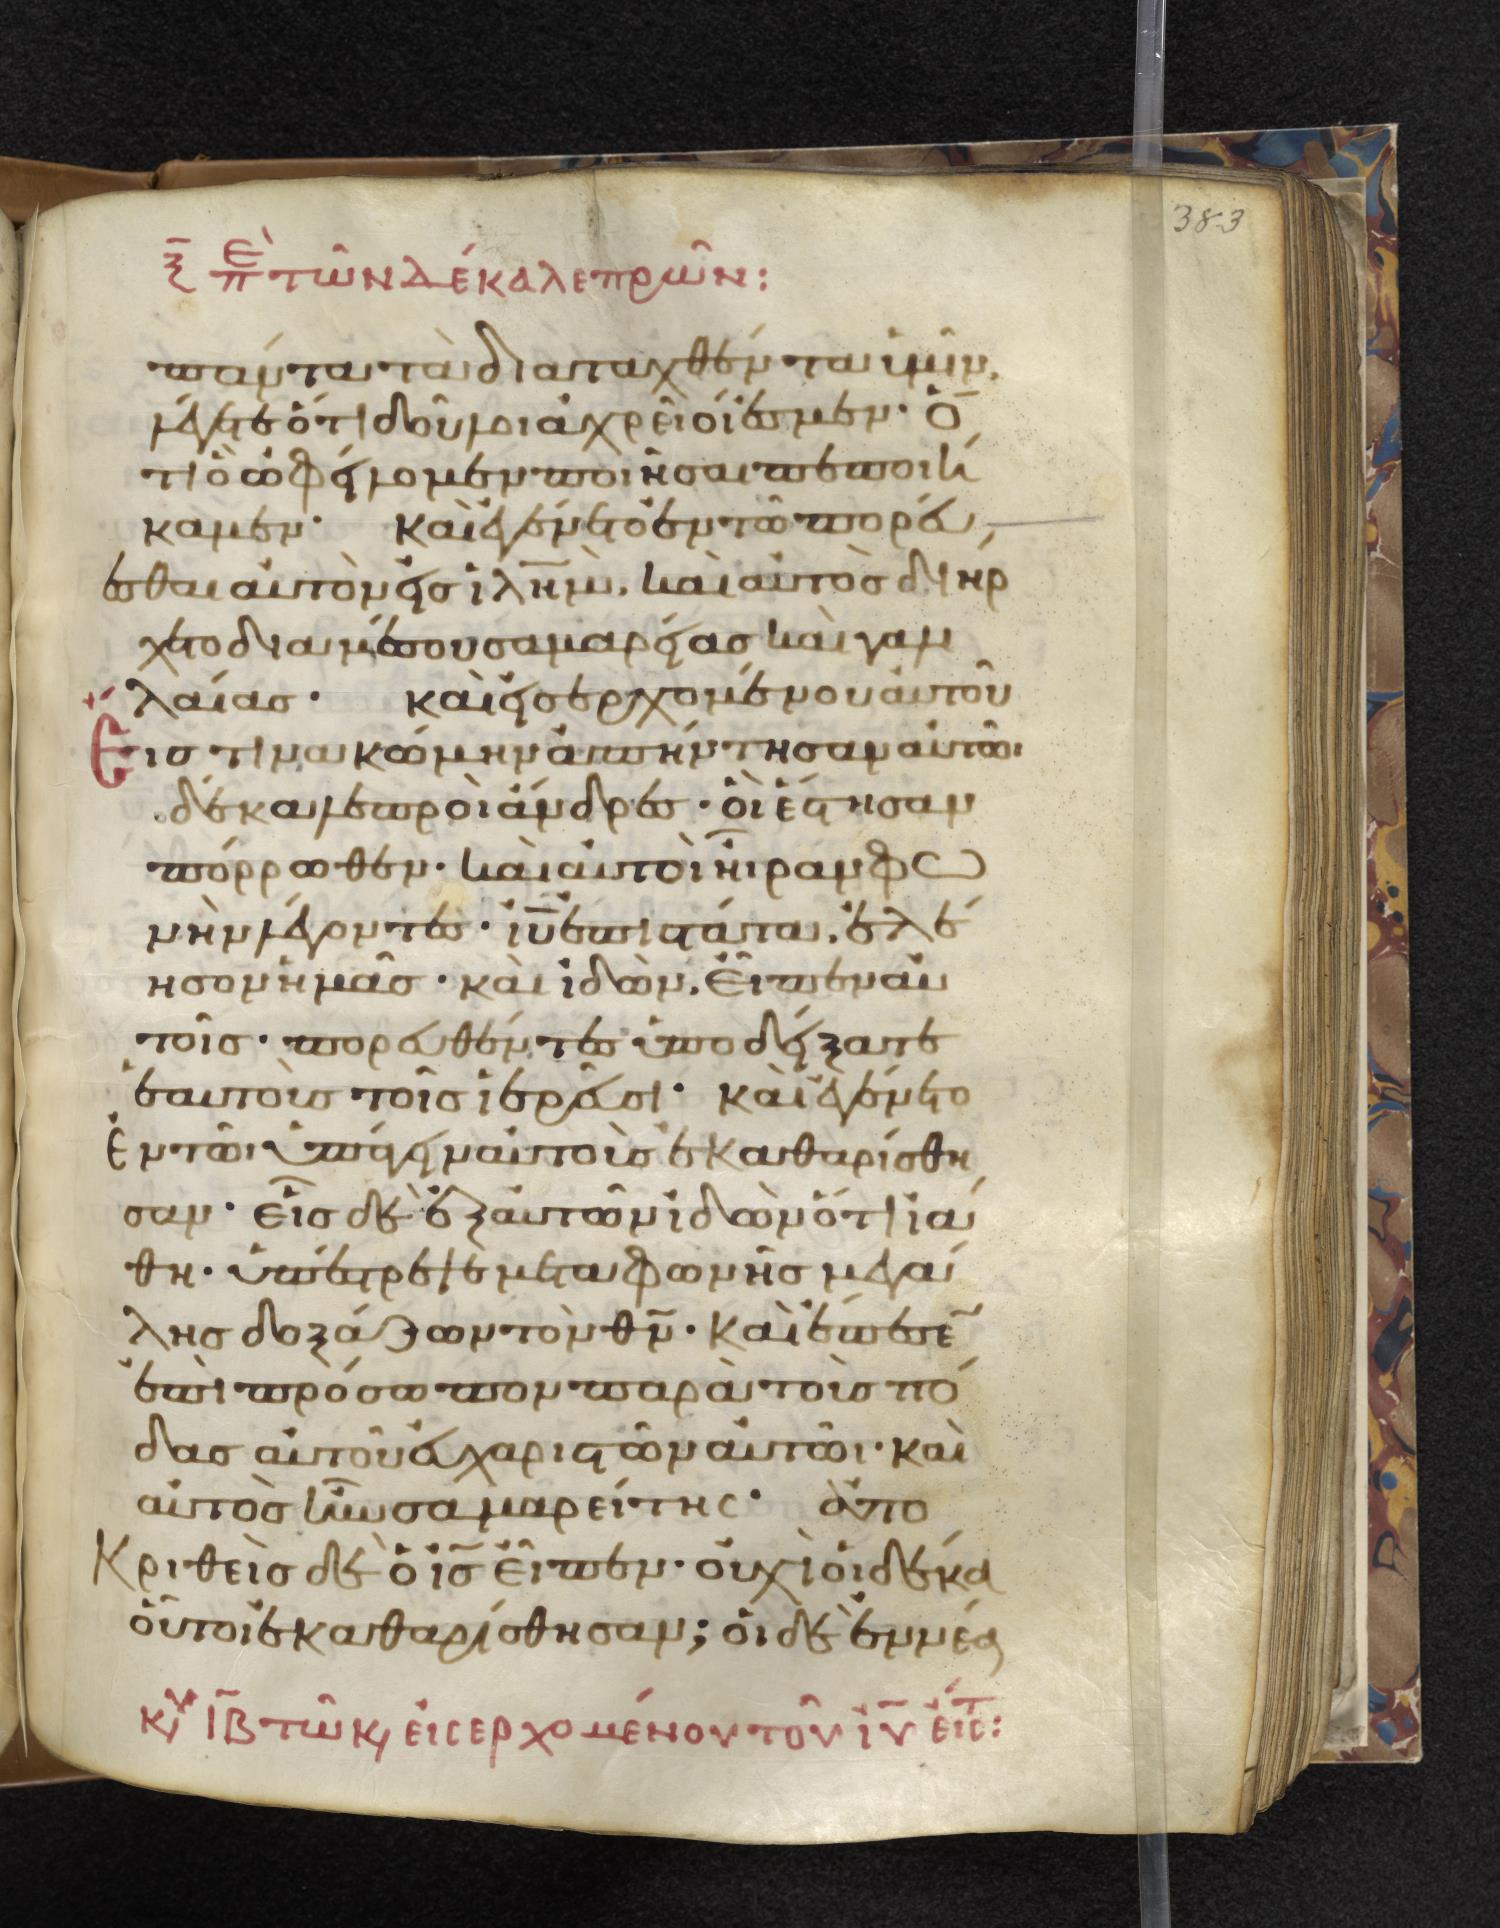 383
ξ̄ Πε τῶν δέκα λεπρῶν:
πάντα τὰ διαταχθέντα ὑμῖν,
λέγετε ὅτι δοῦλοι ἀχρεῖοί ἐσμεν· ὅ
τι ὃ ὠφείλομεν ποιῆσαι πεποιή
καμεν· Καὶ ἐγένετο ἐν τῶ πορεύ
εσθαι αὐτὸν εἰς ἰλημ̄, καὶ αὐτὸς διήρ
χετο δια μέσου σαμαρείας καὶ γαλι
λαίας· καὶ εἰσερχομένου αὐτοῦ
Εἰς τινα κώμην ἀπήντησαν αὐτῶι
δέκα λεπροὶ ἄνδρες· οἳ ἔστησαν
πόρρωθεν· καὶ αὐτοὶ ἦραν φω
νὴν λέγοντες· ἰῡ ἐπιστάτα, ἐλέ
ησον ἡμᾶς· καὶ ἰδὼν, εἶπεν αὐ
τοῖς· πορευθέντες ὑποδείξατε
ἑαυτοὺς τοῖς ἱερεῦσι· καὶ ἐγένετο
ἐν τῶι ὑπάγειν αὐτοὺς ἐκαθαρίσθη
σαν· εἷς δὲ ἐξ αὐτῶν ἰδὼν ὅτι ἰά
θη· ὑπέστρεψε μετα φωνῆς μεγά
λης δοξάζων τὸν θν̄· Καὶ ἔπεσε
ἐπὶ πρόσωπον παρὰ τοὺς πό
δας αὐτοῦ εὐχαριστῶν αὐτῶι· καὶ
αὐτὸς ἦν σαμαρείτης· ἀπο
Κριθεὶς δὲ ὁ ις̄ εἶπεν· οὐχὶ οἱ δέκα
οὗτοι ἐκαθαρίσθησαν; οἱ δὲ ἐννέα
ΙΒ τῶ κῶ εἰσερχομένου τοῦ ιῡ εἴς: